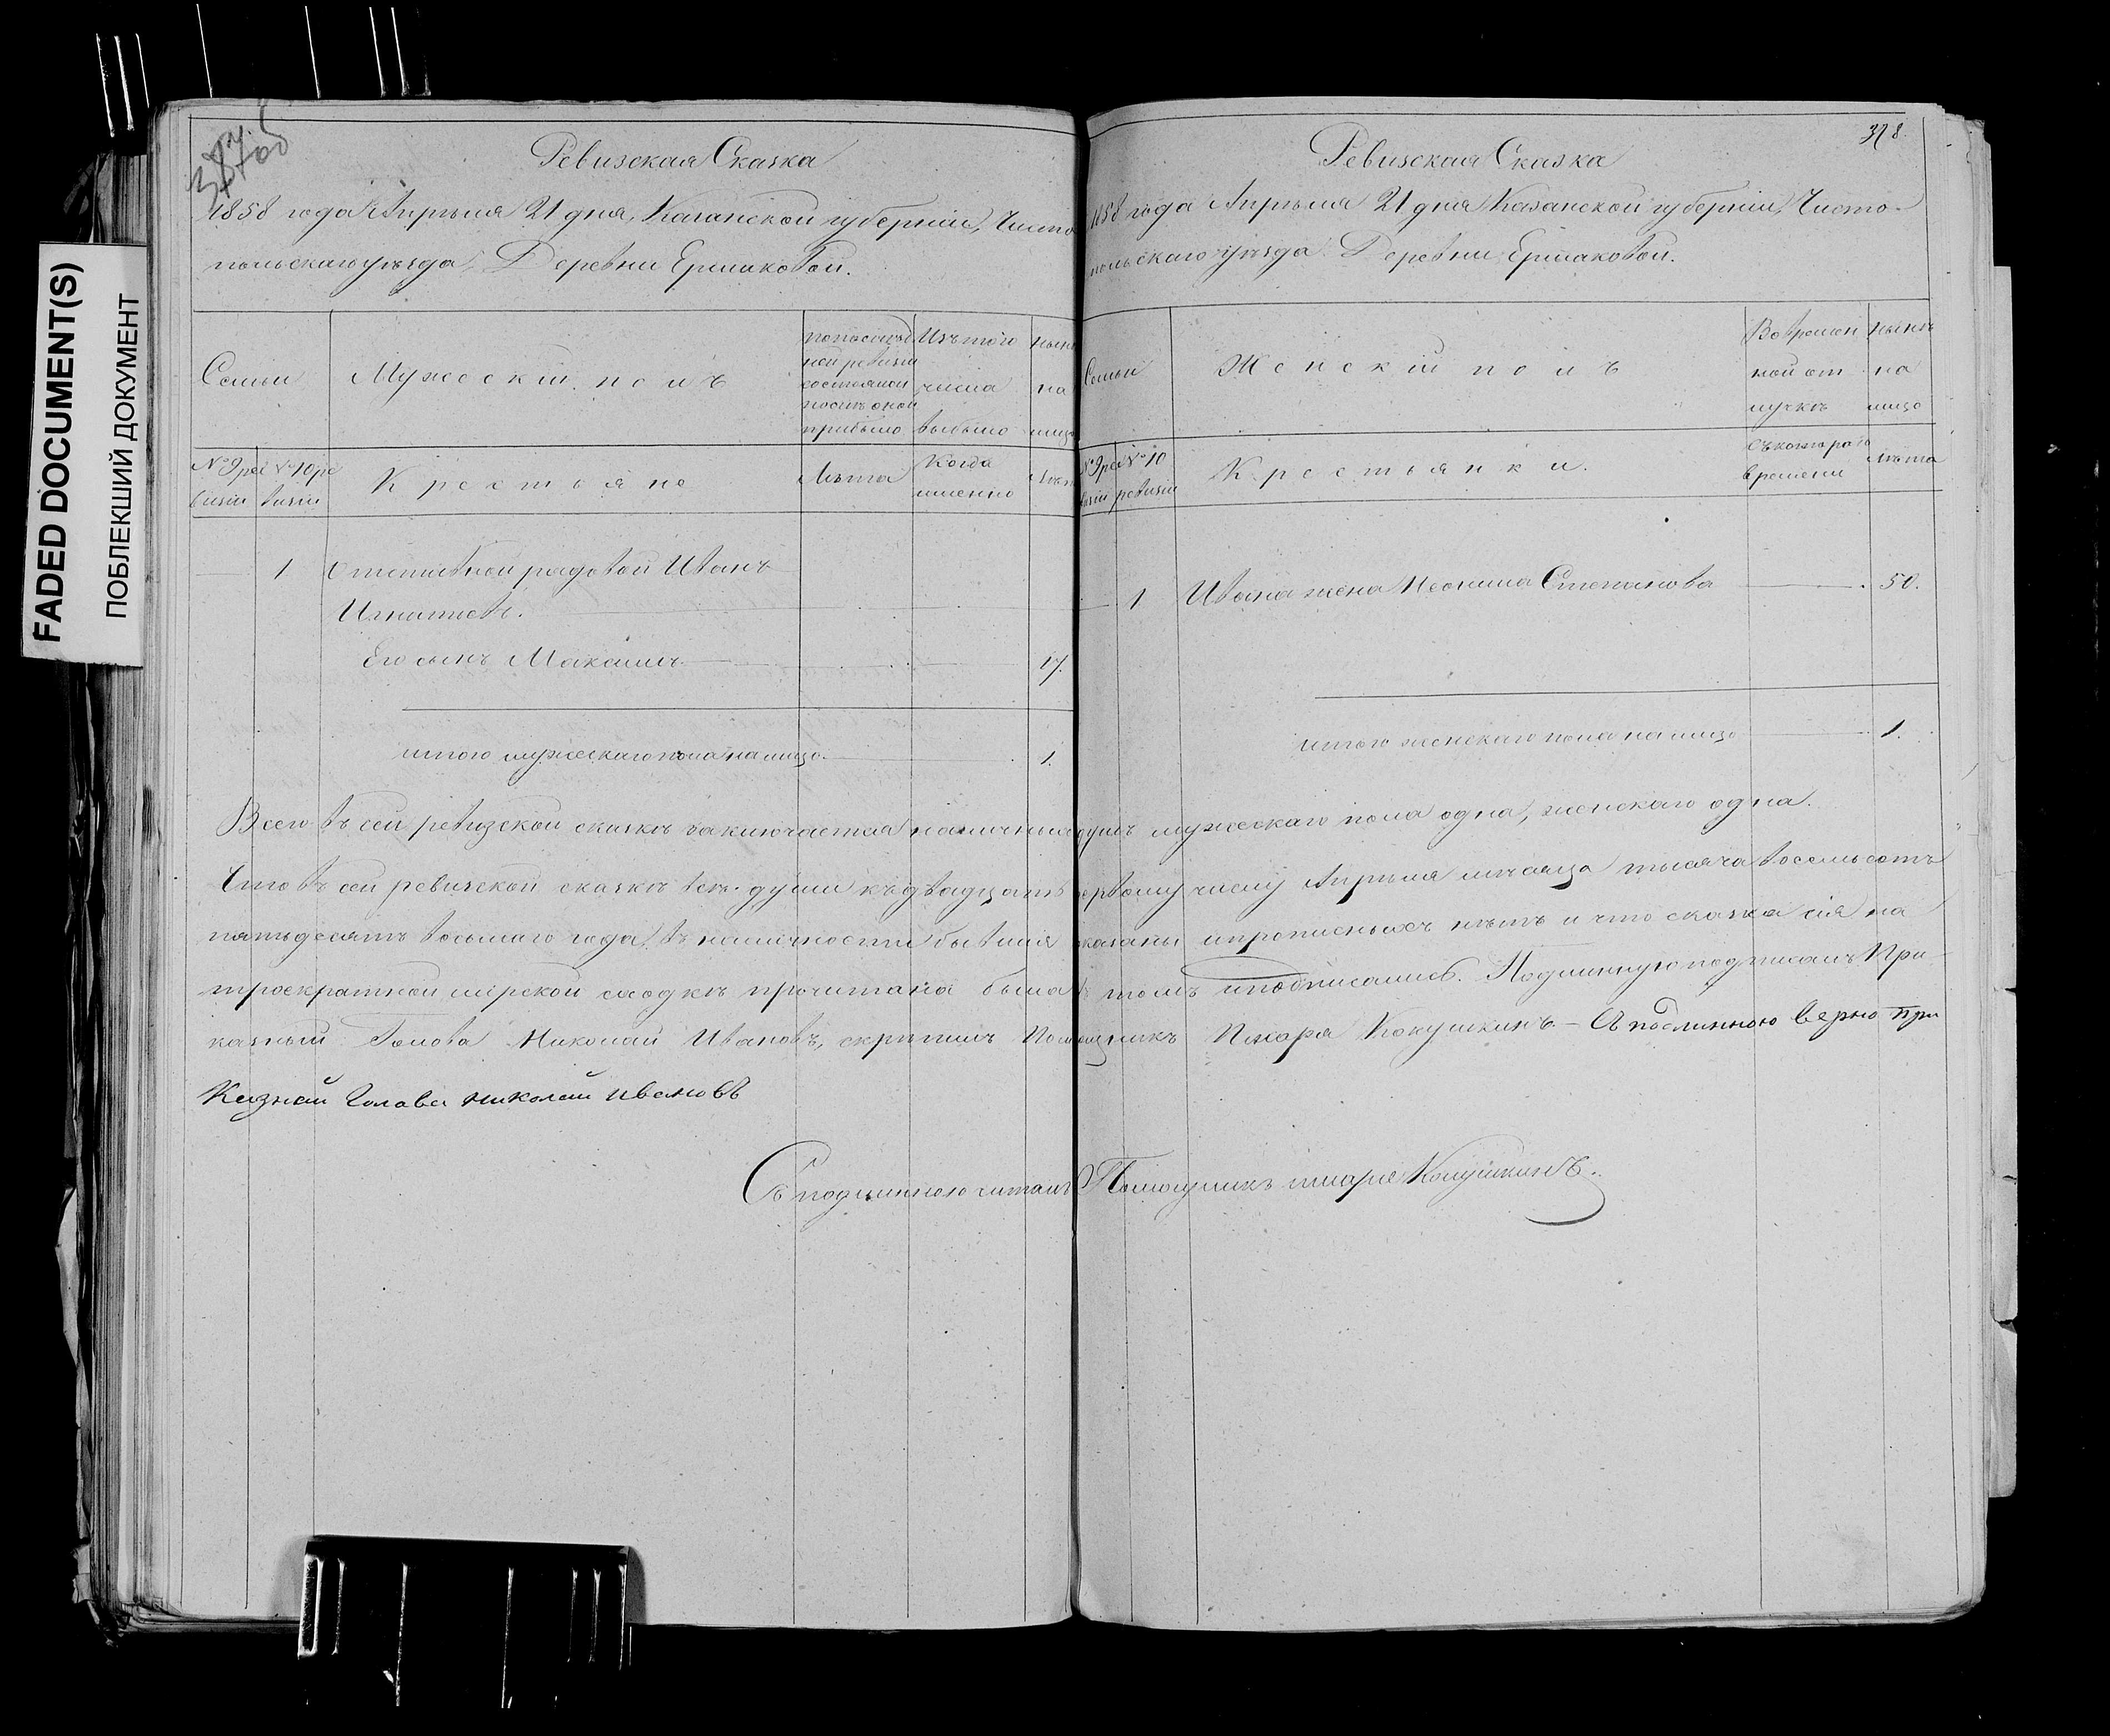 FADED DOCUMENT(S)
ПОБЛЕКШИЙ ДОКУМЕНТ
Ревизская Сказка
1858 года Апрѣля 21 дня, Казанской губерніи, Чисто
польскаго уѣзда, Деревни Ермаковой.
Семьи
Мужескій полъ
по послѣд
ней ревизіи
состояло и
послѣ оной
прибыло
Изъ того
числа
выбыло
нынѣ
на
лицо
№ 9 ре
визіи
№ 10 ре
визіи
Крестьяне
Лѣта
Когда
именно
Лѣта
1 Отставной рядовой Иванъ
Игнатьевъ.
Его сынъ Максимъ 17.
итого мужескаго пола на лицо 1.
378.
Ревизская Сказка
1858 года Апрѣля 21 дня Казанской губерніи, Чисто-
польскаго уѣзда Деревни Ермаковой.
Семьи
Женскій полъ
Во времен
ной от
лучкѣ
нынѣ
на
лицо
№ 9 ре
визіи
№ 10
ревизіи
Крестьянки.
Съ котораго
времени
Лѣта
1 Ивана жена Неонила Степанова 50.
итого женскаго пола на лицо 1.
Всего въ сей ревизской сказкѣ заключается наличныхъ душъ мужескаго пола одна, женскаго одна.
Что въ сей ревизской сказкѣ всѣ души къ двадцать первому числу Апрѣля мѣсяца тысяча восемьсотъ
пятьдесятъ восьмаго года, въ наличности бывшія показаны и прописныхъ нѣтъ и что сказка сія на
троекратной мірской сходкѣ прочитана была въ томъ и подписались. Подлинную подписалъ При-
казный Голова Николай Ивановъ, скрѣпилъ Помощникъ Писаря Кокушкинъ - Съ подлинною верно При
Казнай Голава николай ивановъ
Съ подлинною читалъ Помощникъ писаря Кокушкинъ.